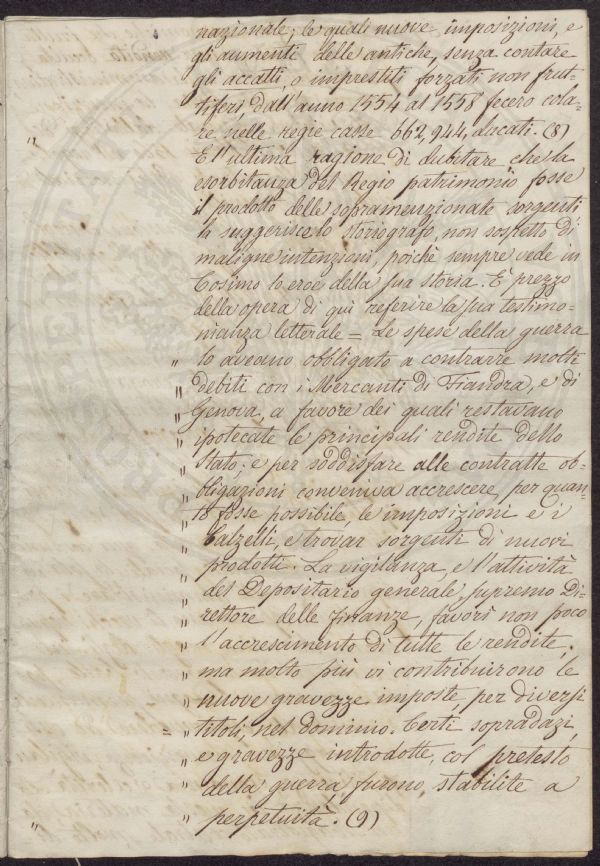 nazionale; le quali nuove imposizioni, e
gli aumenti delle antiche, senza contare
gli accatti, o imprestiti forzati non frut-
tiferi, dall'anno 1554 al 1558 fecero cola-
re nelle Regie casse 662,944, ducati. (8)
E l'ultima ragione di dubitare che la
esorbitanza del Regio patrimonio fosse
il prodotto delle sopramenzionate sorgenti
la suggerisce lo storiografo, non sospetto di
maligne intenzioni, poichè sempre vede in
Cosimo lo eroe della sua storia. È prezzo
della opera di qui referire la sua testimo-
nianza letterale = Le spese della guerra
" lo aveano obbligato a contrarre molti
" debiti con i Mercanti di Fiandra, e di
" Genova, a favore dei quali restavano
" ipotecate le principali rendite dello
" stato; e per soddisfare alle contratte ob-
" bligazioni conveniva accrescere, per quan-
" to fosse possibile, le imposizioni e i
" balzelli, e trovar sorgenti di nuovi
" prodotti. La vigilanza, e l'attività
" del Depositario generale, supremo Di-
" rettore delle finanze, favorì non poco
" l'accrescimento di tutte le rendite,
" ma molto più vi contribuirono le
" nuove gravezze imposte, per diversi
= " titoli, nel dominio. Certi sopradazi,
" e gravezze introdotte, col pretesto
" della guerra, furono, stabilite a
" perpetuità. (9)